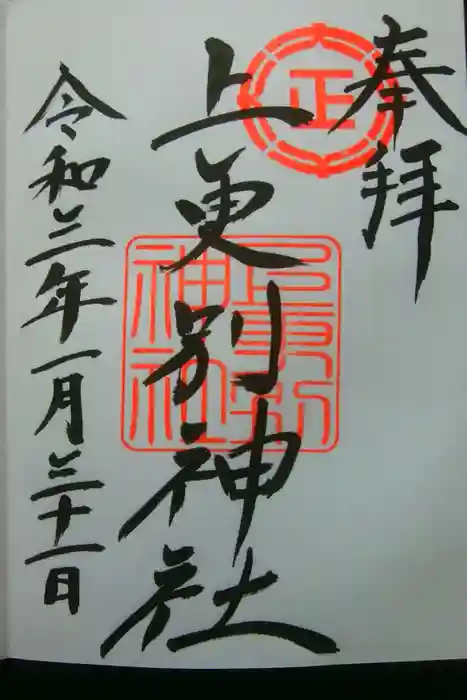 奉拝
正
上更別神社
上更別神社
令和三年一月三十一日